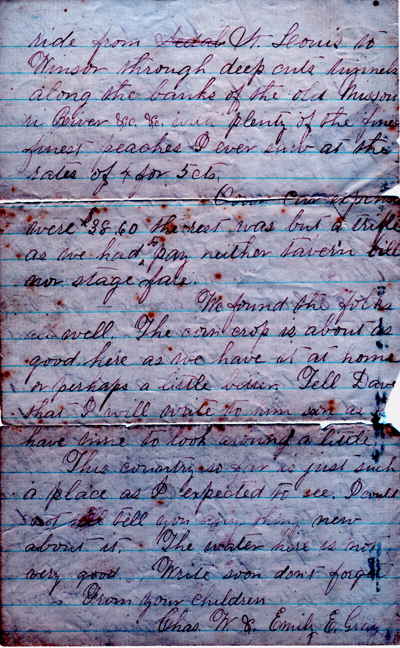 ride from Sedal St. Louis to
Winsor through deep cuts tunnels
along the banks of the old Missou
ri River &c &c with plenty of the fine
finest peaches I ever saw at the
rates of 4 for 5 cts.
Our car expens
were $38.60 the rest was but a trifle
as we had to pay neither tavern bill
nor stage fare.
We found the folks
all well. The corn crop is about as
good here as we have it at home
or perhaps a little better. Tell Dave
that I will write to him soon as I
have time to look around a little.
This country so far is just such
a place as I expected to see. I could
not tell you any thing new
about it. The water here is not
very good. Write soon dont forget
From your children
Chas. W. & Emily E.